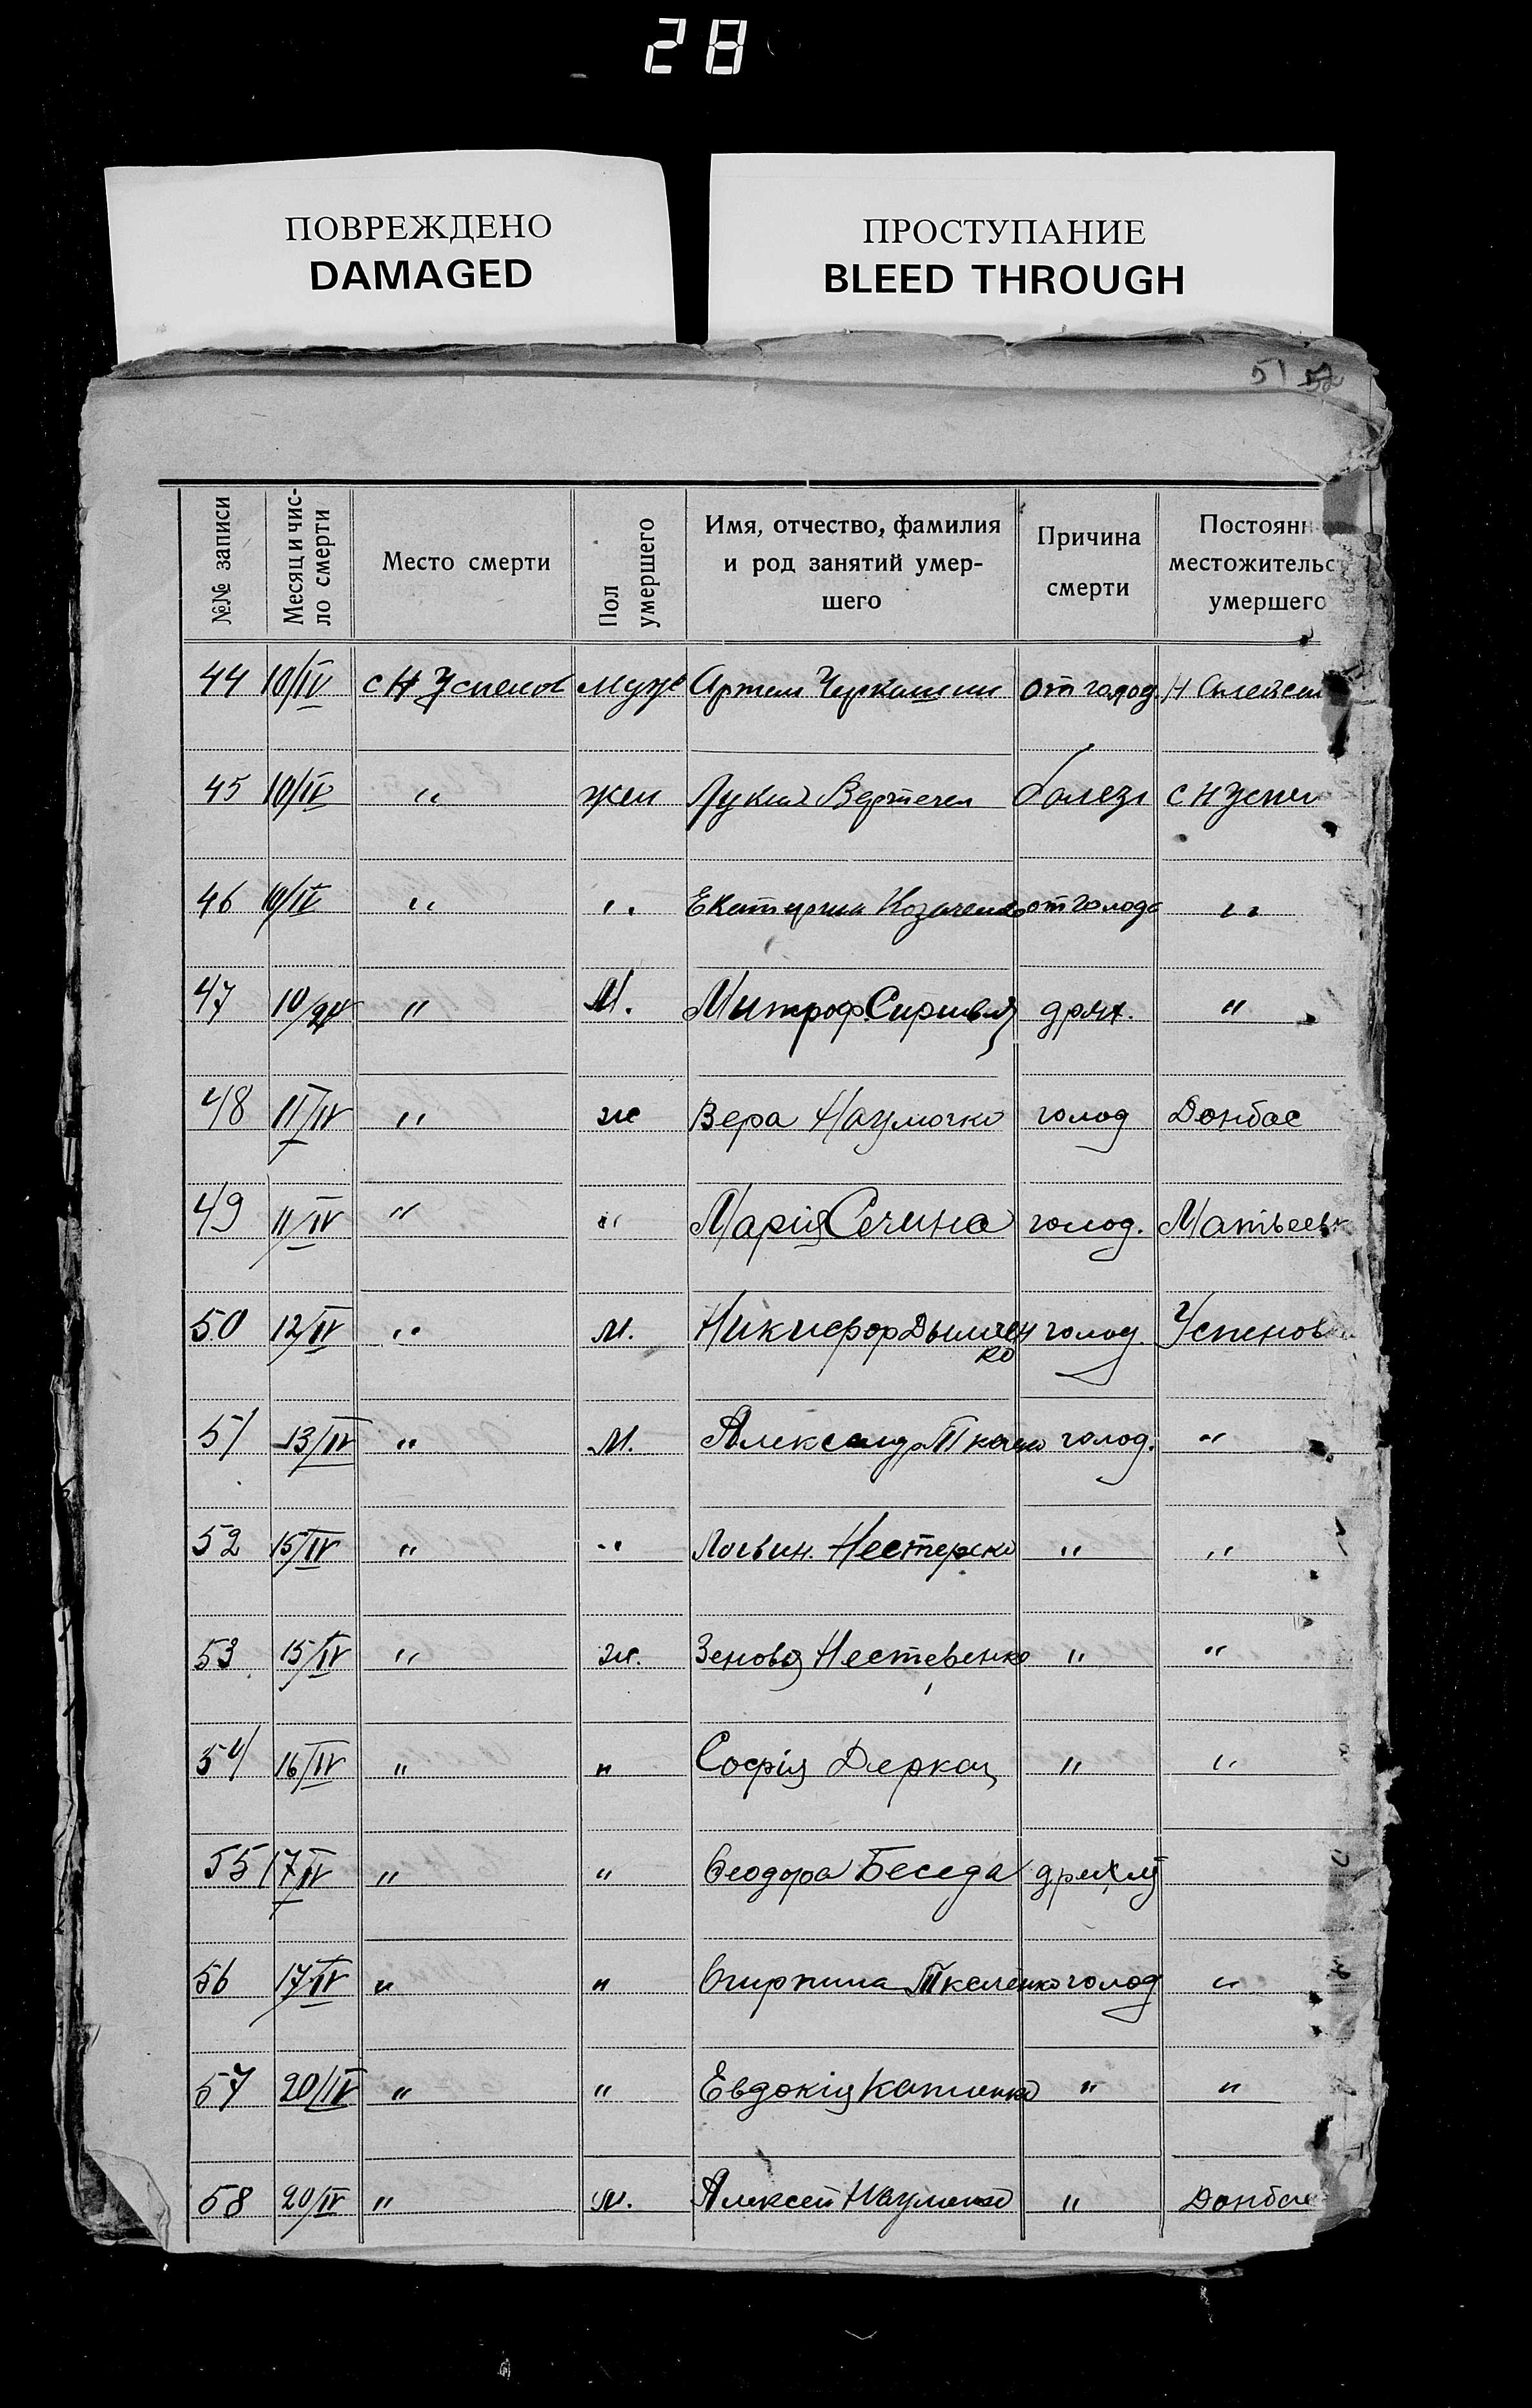 28
ПОВРЕЖДЕНО
DAMAGED
ПРОСТУПАНИЕ
BLEED THROUGH
51 52
№№ записи
Месяц и чис-
ло смерти
Место смерти
Пол
умершего
Имя, отчество, фамилия
и род занятий умер-
шего
Причина
смерти
Постоянн
местожительс
умершего
44 10/IV с Н Успенов муж Артем Черкашин от голод. Н
45 10/IV " жен Лукия болезн с Н Успен
46 10/IV " " Екатерина Козаченко от голода "
47 10/IV " М. Митроф. дрях. "
48 11/IV " ж Вера Наумочко голод Донбас
49 11/IV " " Марія Сечина голод. Матвеевк
50 12/IV " м. Никифор Дымчен голод. Успенов
ко
51 13/IV " М. Александр Ткачко голод. "
52 15/IV " " Логвин. Нестерско " "
53 15/IV " ж. Зеновя Нестеренко " "
54 16/IV " " Софія Деркач " "
55 17/IV " " Феодора Беседа дряхлу
56 17/IV " " Ткаленко голод "
57 20/IV " " Евдокія " "
58 20/IV " М. Алексей Науменко " Донбас